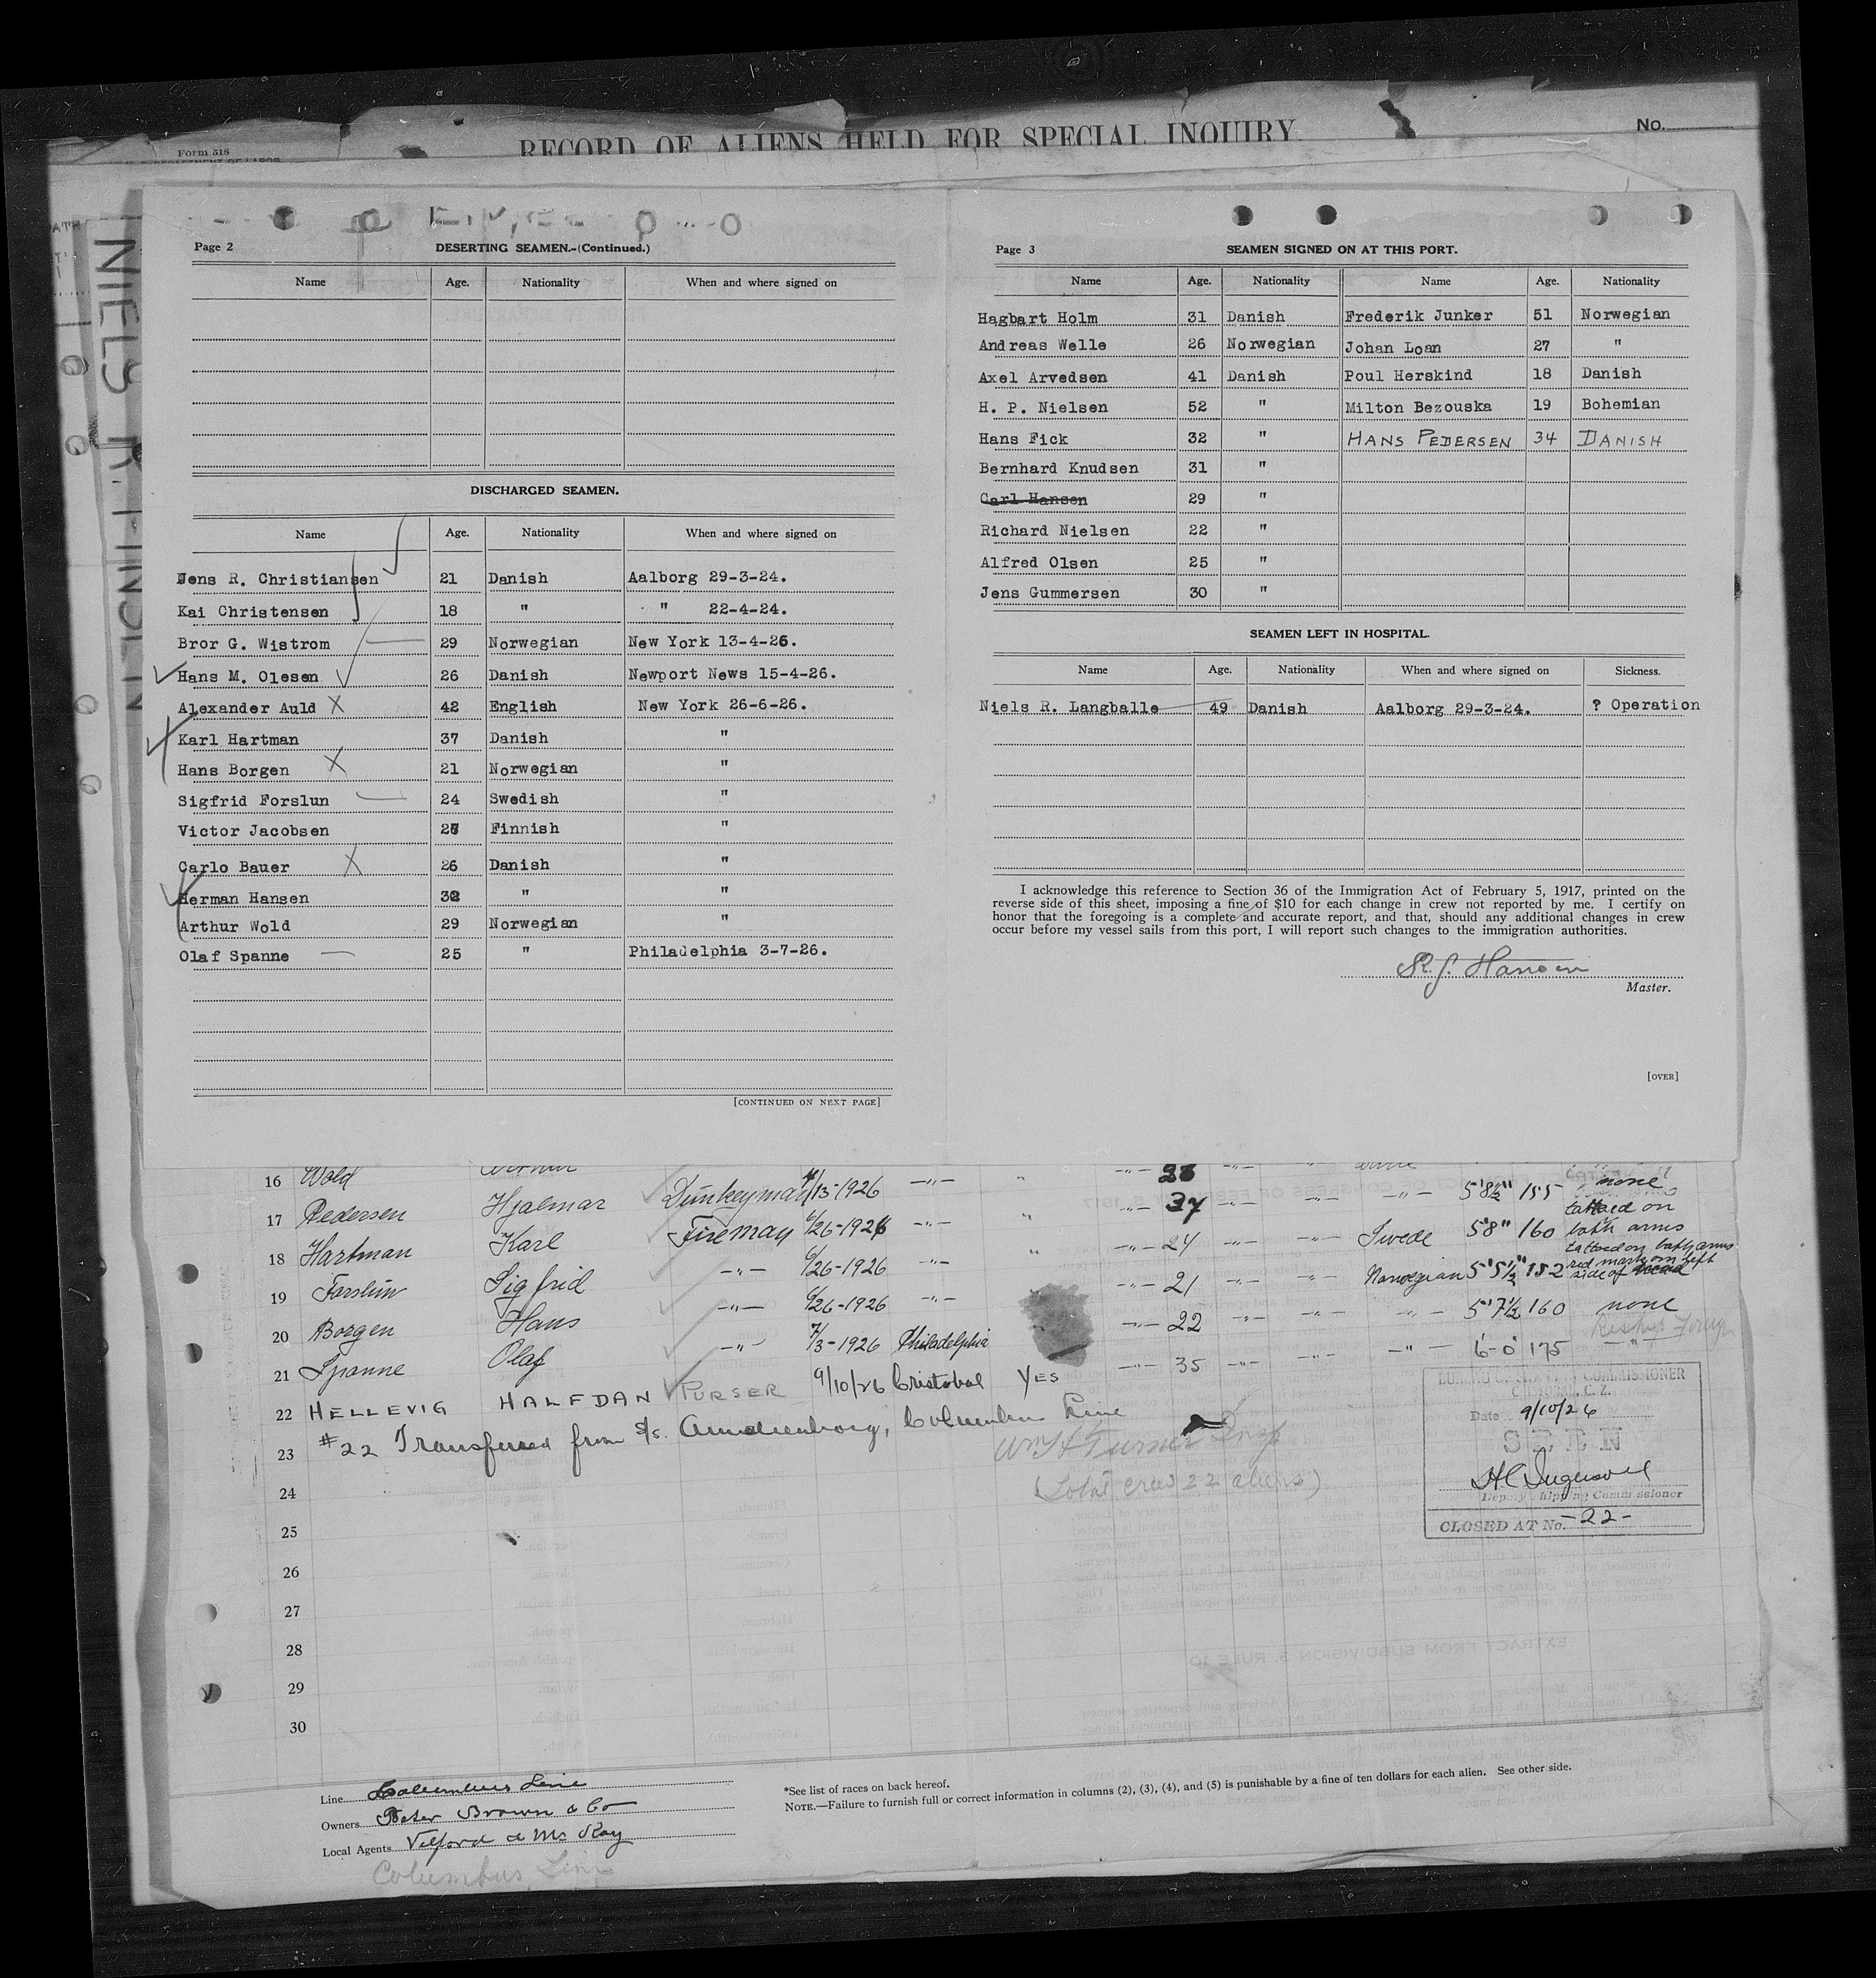 RECORD OF ALIENS HELD FOR SPECIAL INQUIRY
No.
Form 318
Page 2
DESERTING SEAMEN.-(Continued.)
Name Age. Nationality When and where signed on
DISCHARGED SEAMEN.
Name Age. Nationality When and where signed on
Jens R. Christiansen 21 Danish Aalborg 29-3-24.
Kai Christensen 18 " " 22-4-24.
Bror G. Wistrom 29 Norwegian New York 13-4-26.
Hans M. Olesen 26 Danish Newport News 15-4-26.
Alexander Auld X 42 English New York 26-6-26.
Karl Hartman 37 Danish "
Hans Borgen X 21 Norwegian "
Sigfrid Forslun 24 Swedish "
Victor Jacobsen Finnish "
Carlo Bauer X 26 Danish "
Herman Hansen " "
Arthur Wold 29 Norwegian "
Olaf Spanne 25 " Philadelphia 3-7-26.
[CONTINUED ON NEXT PAGE]
Page 3
SEAMEN SIGNED ON AT THIS PORT.
Name Age. Nationality Name Age. Nationality
Hagbart Holm 31 Danish Frederik Junker 51 Norwegian
Andreas Welle 26 Norwegian Johan Loan 27 "
Axel Arvedsen 41 Danish Poul Herskind 18 Danish
H. P. Nielsen 52 " Milton Bezouska 19 Bohemian
Hans Fick 32 " HANS PEDERSEN 34 DANISH
Bernhard Knudsen 31 "
Carl Hansen 29 "
Richard Nielsen 22 "
Alfred Olsen 25 "
Jens Gummersen 30 "
SEAMEN LEFT IN HOSPITAL.
Name Age. Nationality When and where signed on Sickness.
Niels R. Langballe 49 Danish Aalborg 29-3-24. ? Operation
I acknowledge this reference to Section 36 of the Immigration Act of February 5, 1917, printed on the
reverse side of this sheet, imposing a fine of $10 for each change in crew not reported by me. I certify on
honor that the foregoing is a complete and accurate report, and that, should any additional changes in crew
occur before my vessel sails from this port, I will report such changes to the immigration authorities.
Hansen
Master.
[OVER]
16 Wold
17 Pedersen Hjalmar Dunkeyman 4/13-1926 -"- 37 5'8½" 155 none
18 Hartman Karl Fireman 6/26-1926 -"- 24 Swede 5'8" 160 tattoed on both arms
19 Forslun Sigfrid -"- 6/26-1926 -"- 21 Norwegian 5'5½" 152 tattoed on both arms red mark on left side of
20 Borgen Hans -"- 6/26-1926 -"- 22 5'7½ 160 none
21 Spanne Olaf -"- 7/3-1926 Philadelphia 35 6-0 175 -"-
22 HELLEVIG HALFDAN PURSER 9/10/26 Cristobal YES
23 #22 Transferred from S/s. Amalienborg, Columbus Line
Wm H Turner
(Total crew 22 aliens)
24
25
26
27
28
29
30
COMMISSIONER
CRISTOBAL, C. Z.
Date 9/10/26
SEEN
Deputy Shipping Commissioner
CLOSED AT No. -22-
Line Columbus Line
Owners Peter Brown & Co
Local Agents Vilford & McKay
Columbus Line
*See list of races on back hereof.
NOTE.—Failure to furnish full or correct information in columns (2), (3), (4), and (5) is punishable by a fine of ten dollars for each alien. See other side.